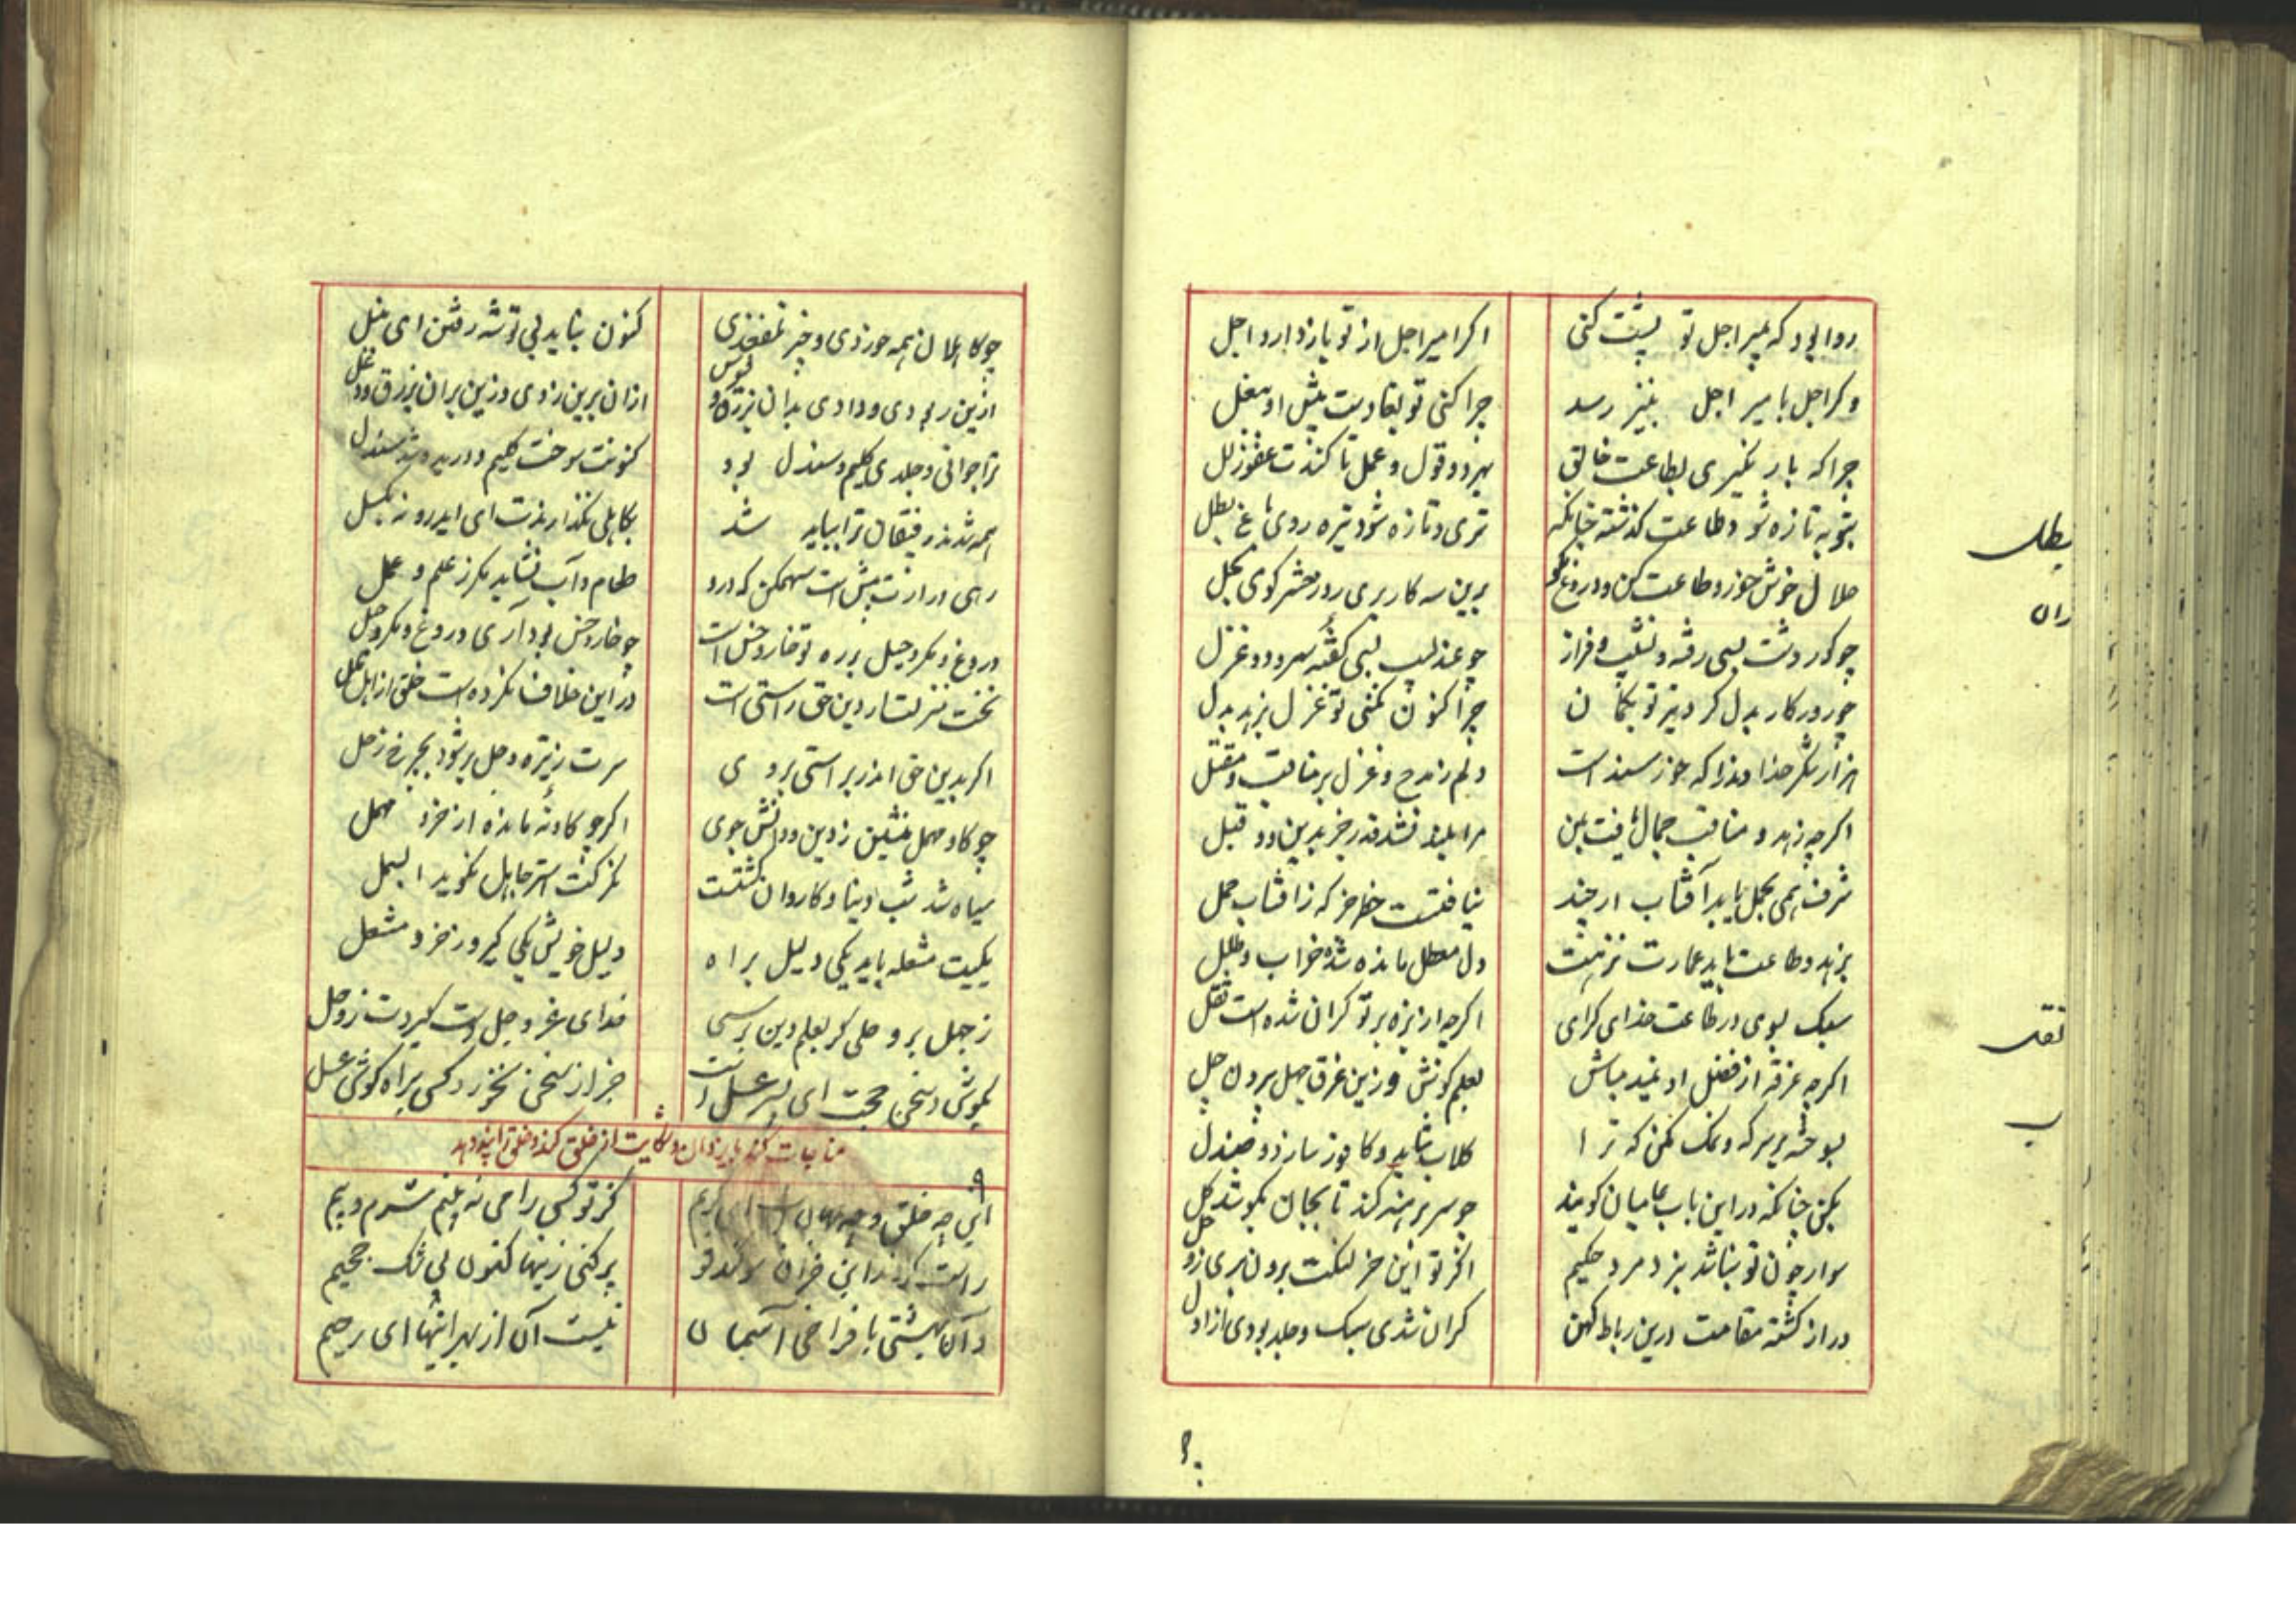 روا بود که بمیر اجل تو پشت کنی
اگر امیر اجل از تو باز دارد اجل
وگر اجل بامیر اجل نیز رسد
چرا کنی تو بعادت بپیش او
چرا که باز نگیری بطاعت خالق
بهر دو قول و عمل تا کندت عفو زلل
بتوبه تازه شود طاعت گذشته چنانکه
تری و تازه شود تیره روی باغ بطل
حلال خوش خور و طاعت کن و دروغ مگو
برین سه کار بری روز محشر گوی
چو گور دشت بسی رفته و نشیب و فراز
چو عندلیب بسی گفته سرود و غزل
چو روزگار بدل کرد تیر تو بکمان
چرا کنون نکنی تو غزل بزهد بدل
هزار شکر خداوند را که خرسند است
دلم ز مدح و غزل بر مناقب و مقتل
اگرچه زهد و مناقب جمال یافت بمن
مرا بلند نشد قدر جز بدین دو قبل
شرف همی بحمل یابد آفتاب ارچند
نیافتست خطر جز که ز افتاب حمل
بزهد و طاعت یابد عمارت
دل معطل مانده شده خراب و طلل
سبک بسوی در طاعت خدای گرای
اگرچه از بزه بر تو گران شده است ثقل
اگرچه غرقه از فضل او نمید مباش
بعلم کوش و زین غرق جهل بیرون جل
بسوخته بر سرکه و نمک مکن که ترا
گلاب شاید و کافور سازد و صندل
بکن چنانکه در این باب عامیان گویند
چو سر برهنه کند تا بجان بکوشد کل
سوار چون تو نباشد بنزد مرد حکیم
اگر تو این خر لنگت برون بری ز وحل
دراز گشته مقامت درین رباط کهن
گران شدی سبک و جلد بودی از اول
چو کاهلان همه خوردی و چیز نلفغدی
کنون بباید بی توشه رفتن ای
ازین ربودی و دادی بدان بزرق و فسوس
ازان برین زدی و زین بران بزرق و دغل
ترا جوانی و جلدی گلیم و سندل بود
کنونت سوخت گلیم و دریده شد سندل
همه شدند رفیقان ترا بباید شد
بکاهلی نگذارندت ای ایدرو
رهی درازت پیش است سهمگن که درو
طعام و آب نشاید مگر ز علم و عمل
دروغ و مکر و حیل بر ره تو خار و خس است
چو خار و خس بود آری دروغ و مکر و حیل
در این خلاف نکرده است خلق از اهل ملل
اگر بدین حق اندر براستی بروی
سرت ز تیره وحل بر شود بچرخ زحل
چو گاو مهمل منشین ز دین و دانش جوی
اگر چو گاو نه مانده از خرد مهمل
سیاه شد شب دنیا و کاروان
یکیت مشعله باید یکی دلیل براه
دلیل خویش یکی گیر و ز خرد مشعل
ز جهل برو حلی گر بعلم دین برسی
خدای عز و جل دست گیردت ز وحل
بگوش در سخن حجت ای پسر عسل است
جز از سخن نخورد کس براه گوش عسل
مناجات کند با یزدان و شکایت از خلق کند و خلق را پند دهد
این چه خلق و چه جهان است ای کریم
کز تو کس را می نه بینم شرم و بیم
راست کردند این خران سوگند تو
پر کنی زینها کنون بی شک جحیم
و آن بهشتی با فراخی آسمان
نیست آن از بهر اینها ای رحیم
بطل